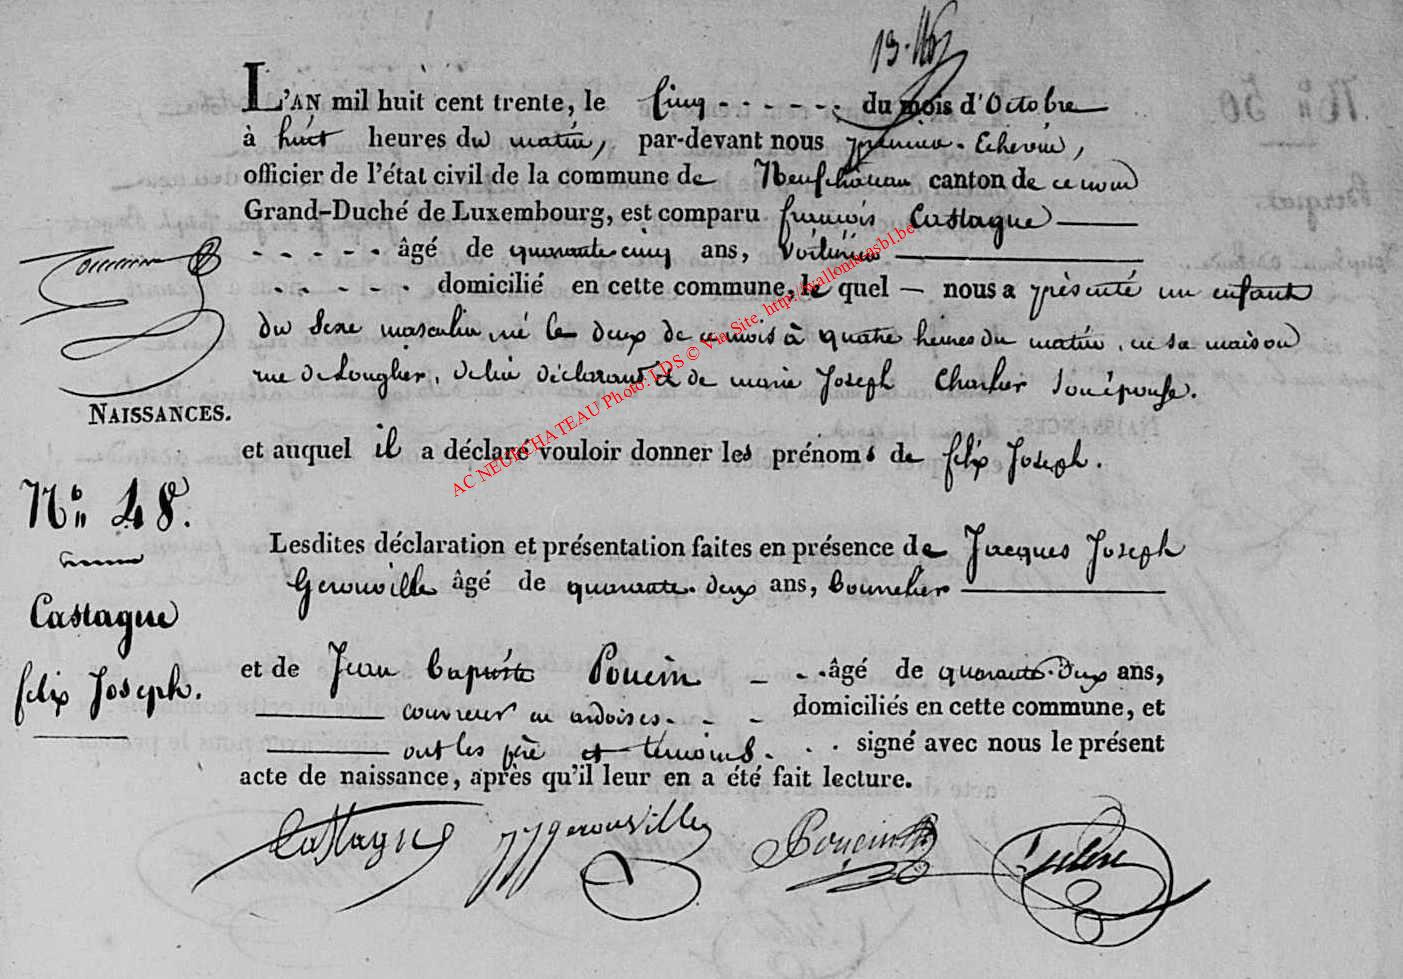 L'AN mil huit cent trente, le Cinq - - - - - - du mois d'Octobre
à huit heures du matin, par-devant nous premier Echevin,
officier de l'état civil de la commune de Neufchateau canton de ce nom
Grand-Duché de Luxembourg, est comparu françois Castagne
- - - - - âgé de quarante cinq ans, Voiturier
- - - - - domicilié en cette commune, le quel — nous a présenté un enfant
du Sexe masculin, né le deux de ce mois à quatre heures du matin, en sa maison
rue de Longlier, de lui déclarant et de marie Joseph Charlier Son épouse.
NAISSANCES.
et auquel il a déclaré vouloir donner les prénoms de felix Joseph.
N° 48.
Castagne
felix Joseph.
Lesdites déclaration et présentation faites en présence de Jacques Joseph
Gerouville âgé de quarante-deux ans, bonnelier
et de Jean baptiste Poncin — - - âgé de quarante-deux ans,
couvreur en ardoises - - - domiciliés en cette commune, et
ont les père et témoins - - - signé avec nous le présent
acte de naissance, après qu'il leur en a été fait lecture.
Castagne JJ gerouville Poncin
AC NEUFCHATEAU Photo: LDS © Via Site. http://wallonia.asbl.be